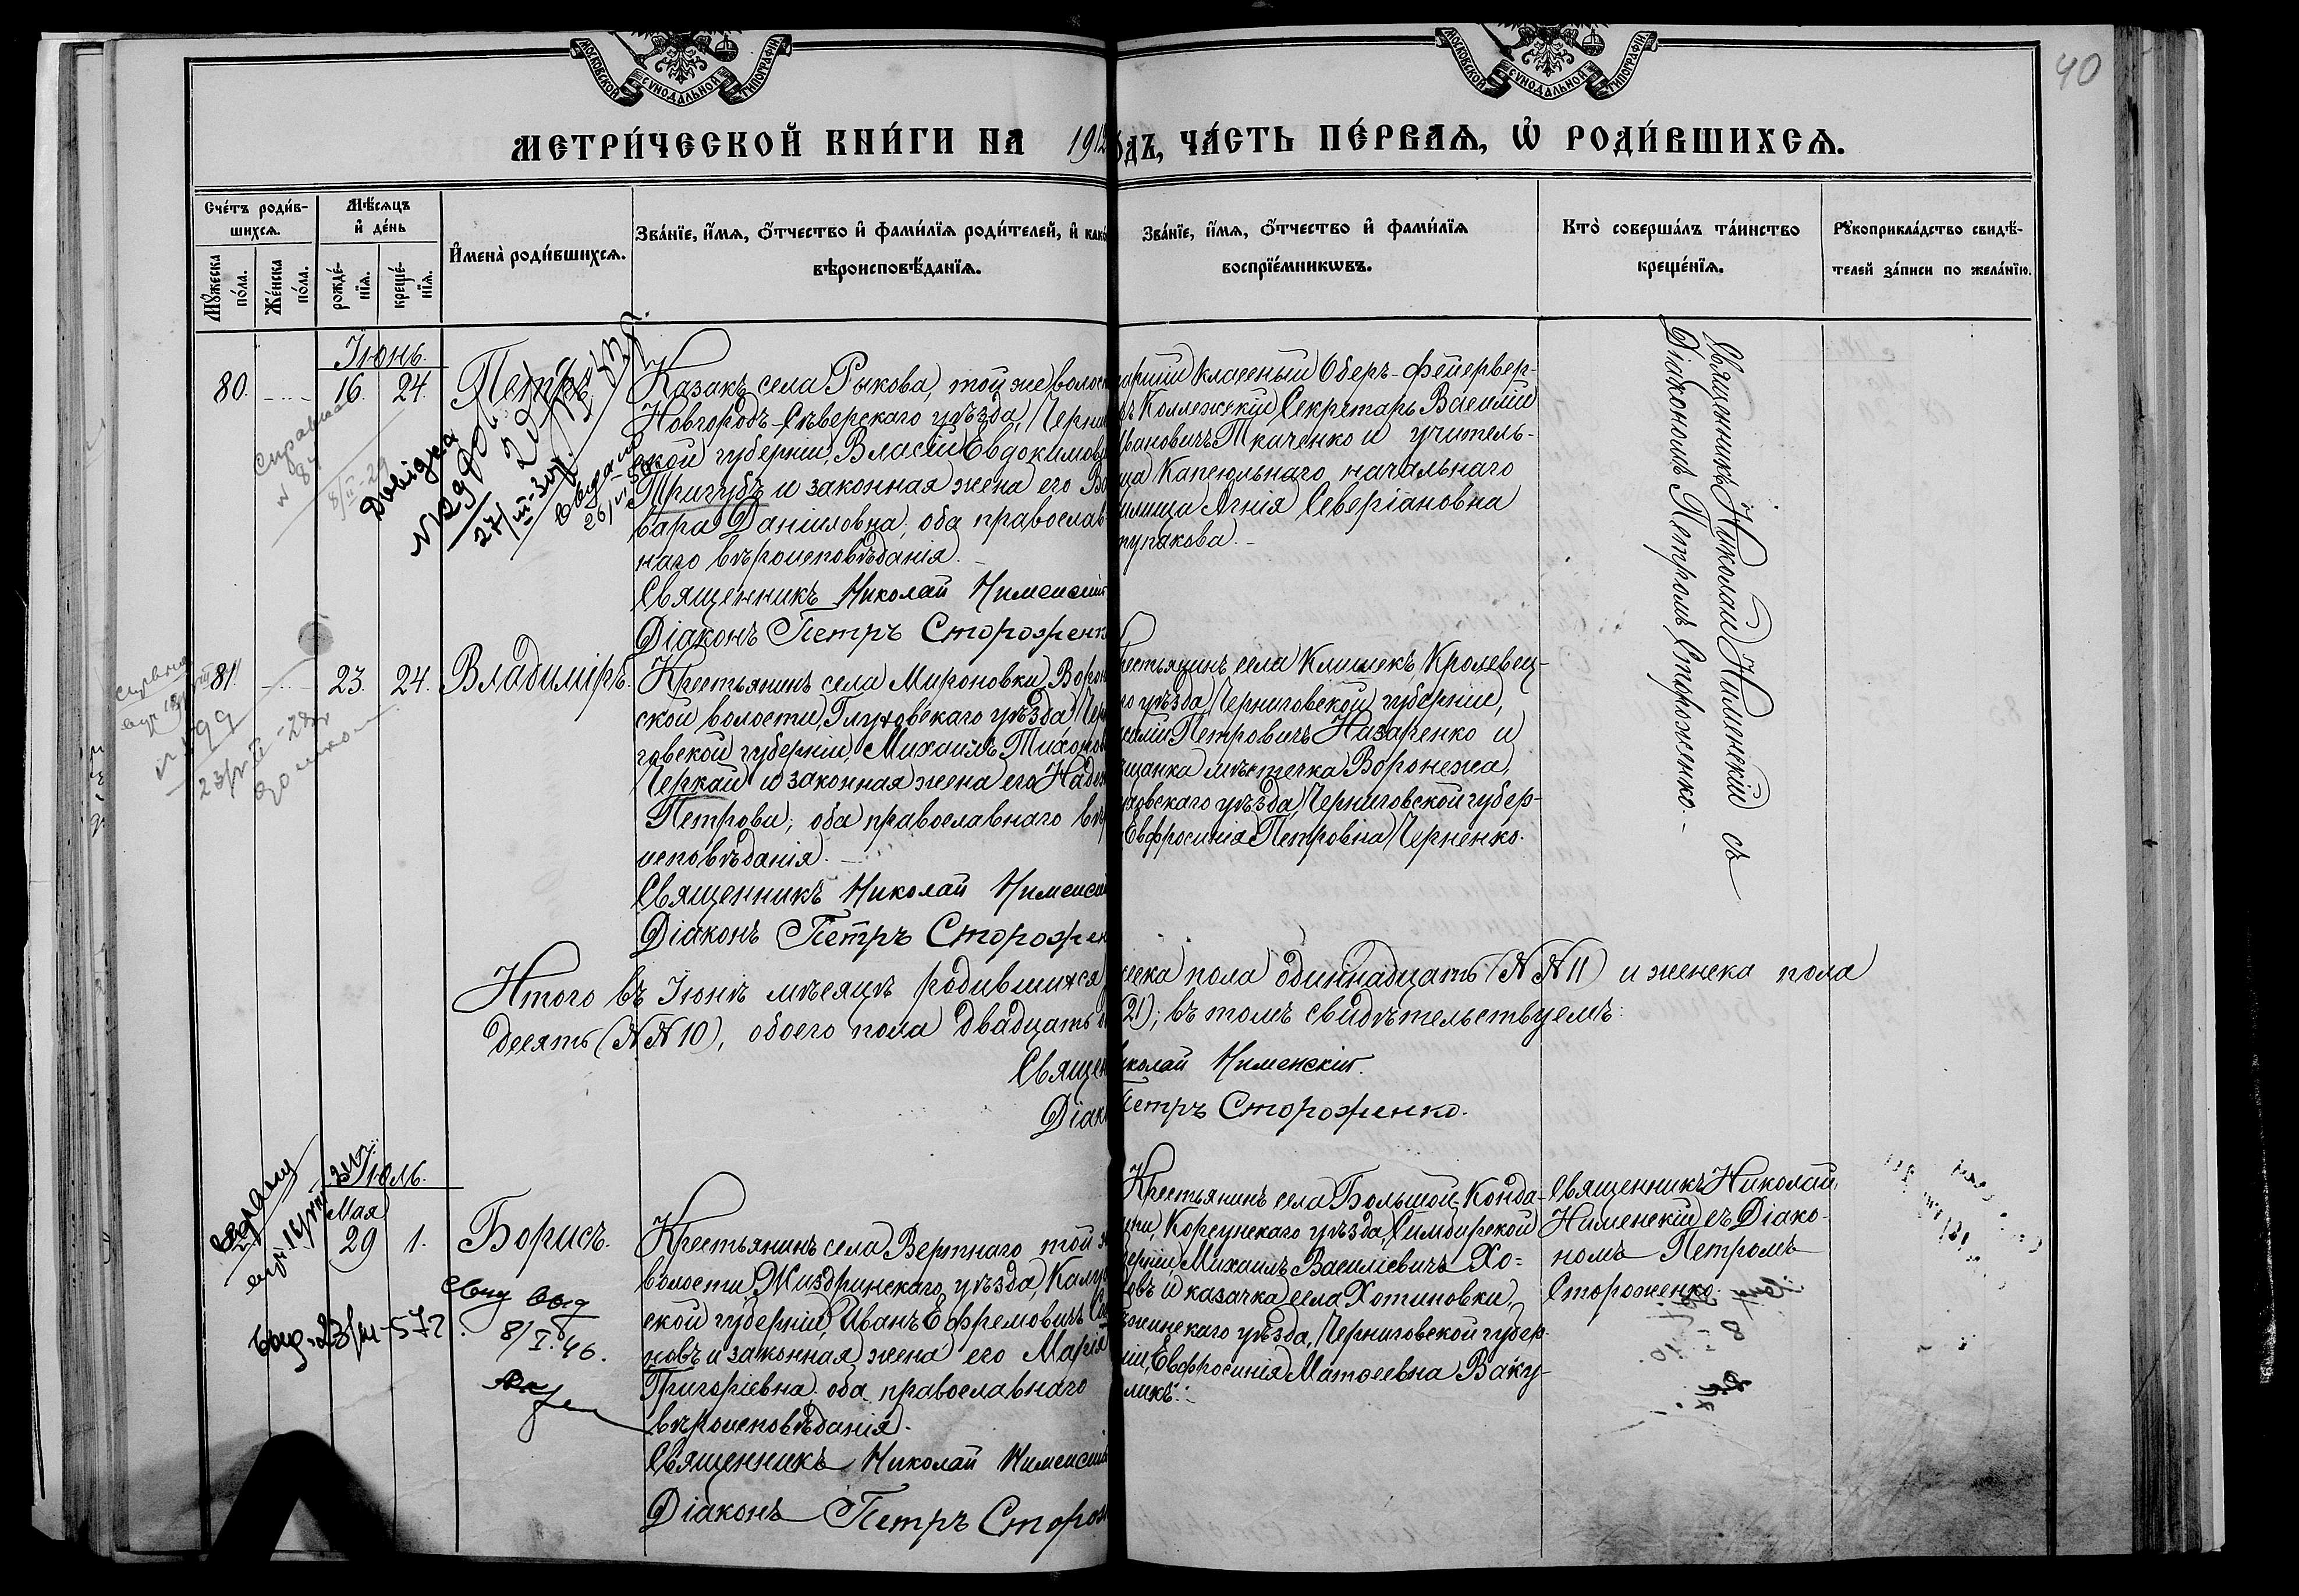 МОСКОВСКОЙ СѴНОДАЛЬНОЙ ТИПОГРАФІИ
МОСКОВСКОЙ СѴНОДАЛЬНОЙ ТИПОГРАФІИ
40
МЕТРИ́ЧЕСКОЙ КНИ́ГИ НА 1912
ОДЪ, ЧА́СТЬ ПЕ́РВАѦ, Ѡ РОДИ́ВШИХСѦ.
Сче́тъ роди́в-
шихсѧ.
Мѣ́сѧцъ
и де́нь
Имена̀ роди́вшихсѧ.
Зва́нїе, и́мѧ, о́тчество и фами́лїѧ роди́телей, и како
вѣроисповѣ́данїѧ.
Мꙋ́жеска
по́ла.
Же́нска
по́ла.
рожде́-
нїѧ.
креще́-
нїѧ.
Зва́нїе, и́мѧ, о́тчество и фами́лїѧ
воспрїе́мникѡвъ.
Кто̀ соверша́лъ та́инство
креще́нїѧ.
Рꙋкоприкла́дство свидѣ́-
телей за́писи по жела́нїю.
Іюнь.
80. 16. 24. Петръ.
Казакъ села Рыкова, той же волос
Новгородъ-Сѣверскаго уѣзда, Черни
ской губерніи, Власій Евдокимов
Тригубъ и законная жена его Ва
вара Даниловна; оба православ
наго вѣроисповѣданія.
Священникъ Николай Нименскій
Діаконъ Петръ Стороженк
аршій классный Оберъ-фейервер-
ъ Коллежскій Секретарь Василій
вановичъ Ткаченко и учитель-
ца Капсюльнаго начальнаго
илища Агнія Северіановна
тупакова.
Священникъ Николай Нименскій съ
Діакономъ Петромъ Стороженко.
Справка
Довідка
27/III-30
26/VI
81. 23. 24. Владиміръ.
Крестьянинъ села Мироновки, Ворон
ской волости, Глуховскаго уѣзда, Чер
говской губерніи, Михаилъ Тихонов
Черкай и законная жена его Наде
Петрова; оба православнаго вѣр
исповѣданія.
Священникъ Николай Нименскі
Діаконъ Петръ Сторожен
рестьянинъ села Клишекъ, Кролевец-
го уѣзда, Черниговской губерніи,
силій Петровичъ Назаренко и
щанка мѣстечка Воронежа,
ховскаго уѣзда, Черниговской губер-
Евфросинія Петровна Черненко.
Итого въ Іюнѣ мѣсяцѣ родившихся
жеска пола одиннадцать (№№ 11) и женска пола
десять (№№ 10), обоего пола двадцать о
21); въ томъ свидѣтельствуемъ:
Священ
иколай Нименскій.
Діако
Петръ Стороженко.
Іюль.
Мая
29 1. Борисъ.
Крестьянинъ села Вертнаго той ж
волости, Жиздринскаго уѣзда, Калуж
ской губерніи, Иванъ Ефремовичъ Се
новъ и законная жена его Марія
Григоріевна; оба православнаго
вѣроисповѣданія.
Священникъ Николай Нименскій
Діаконъ Петръ Сторож
Крестьянинъ села Большой Конда-
Корсунскаго уѣзда, Симбирской
берніи, Михаилъ Василіевичъ Хо-
овъ и казачка села Хотиновки,
жинскаго уѣзда, Черниговской губер-
ніи, Евфросинія Матѳеевна Ваку-
ликъ.
Священникъ Николай
Нименскій съ Діако-
номъ Петромъ
Стороженко.
8/I.46.